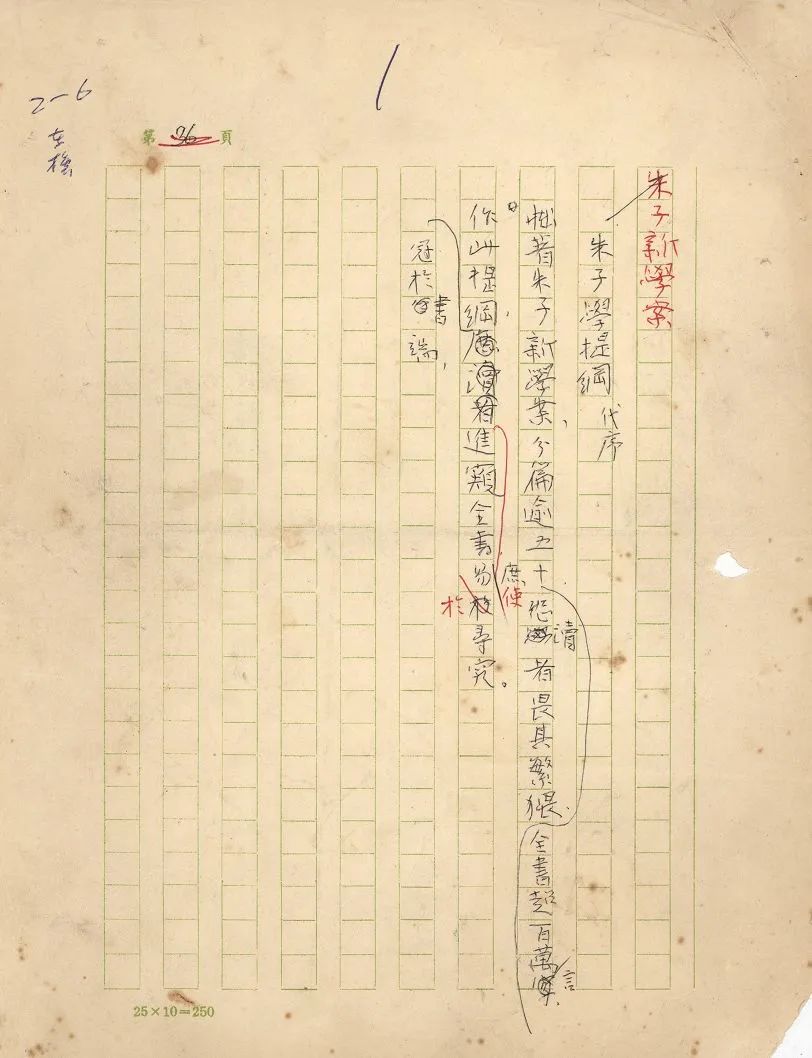 2-6
第 36 頁
朱子新學案
朱子學提綱 代序
拙著朱子新學案、分篇逾五十。恐讀者畏其繁猥。全書超百萬言、
作此提綱、庶使進窺全書易於尋究。
冠於書端、
25×10=250